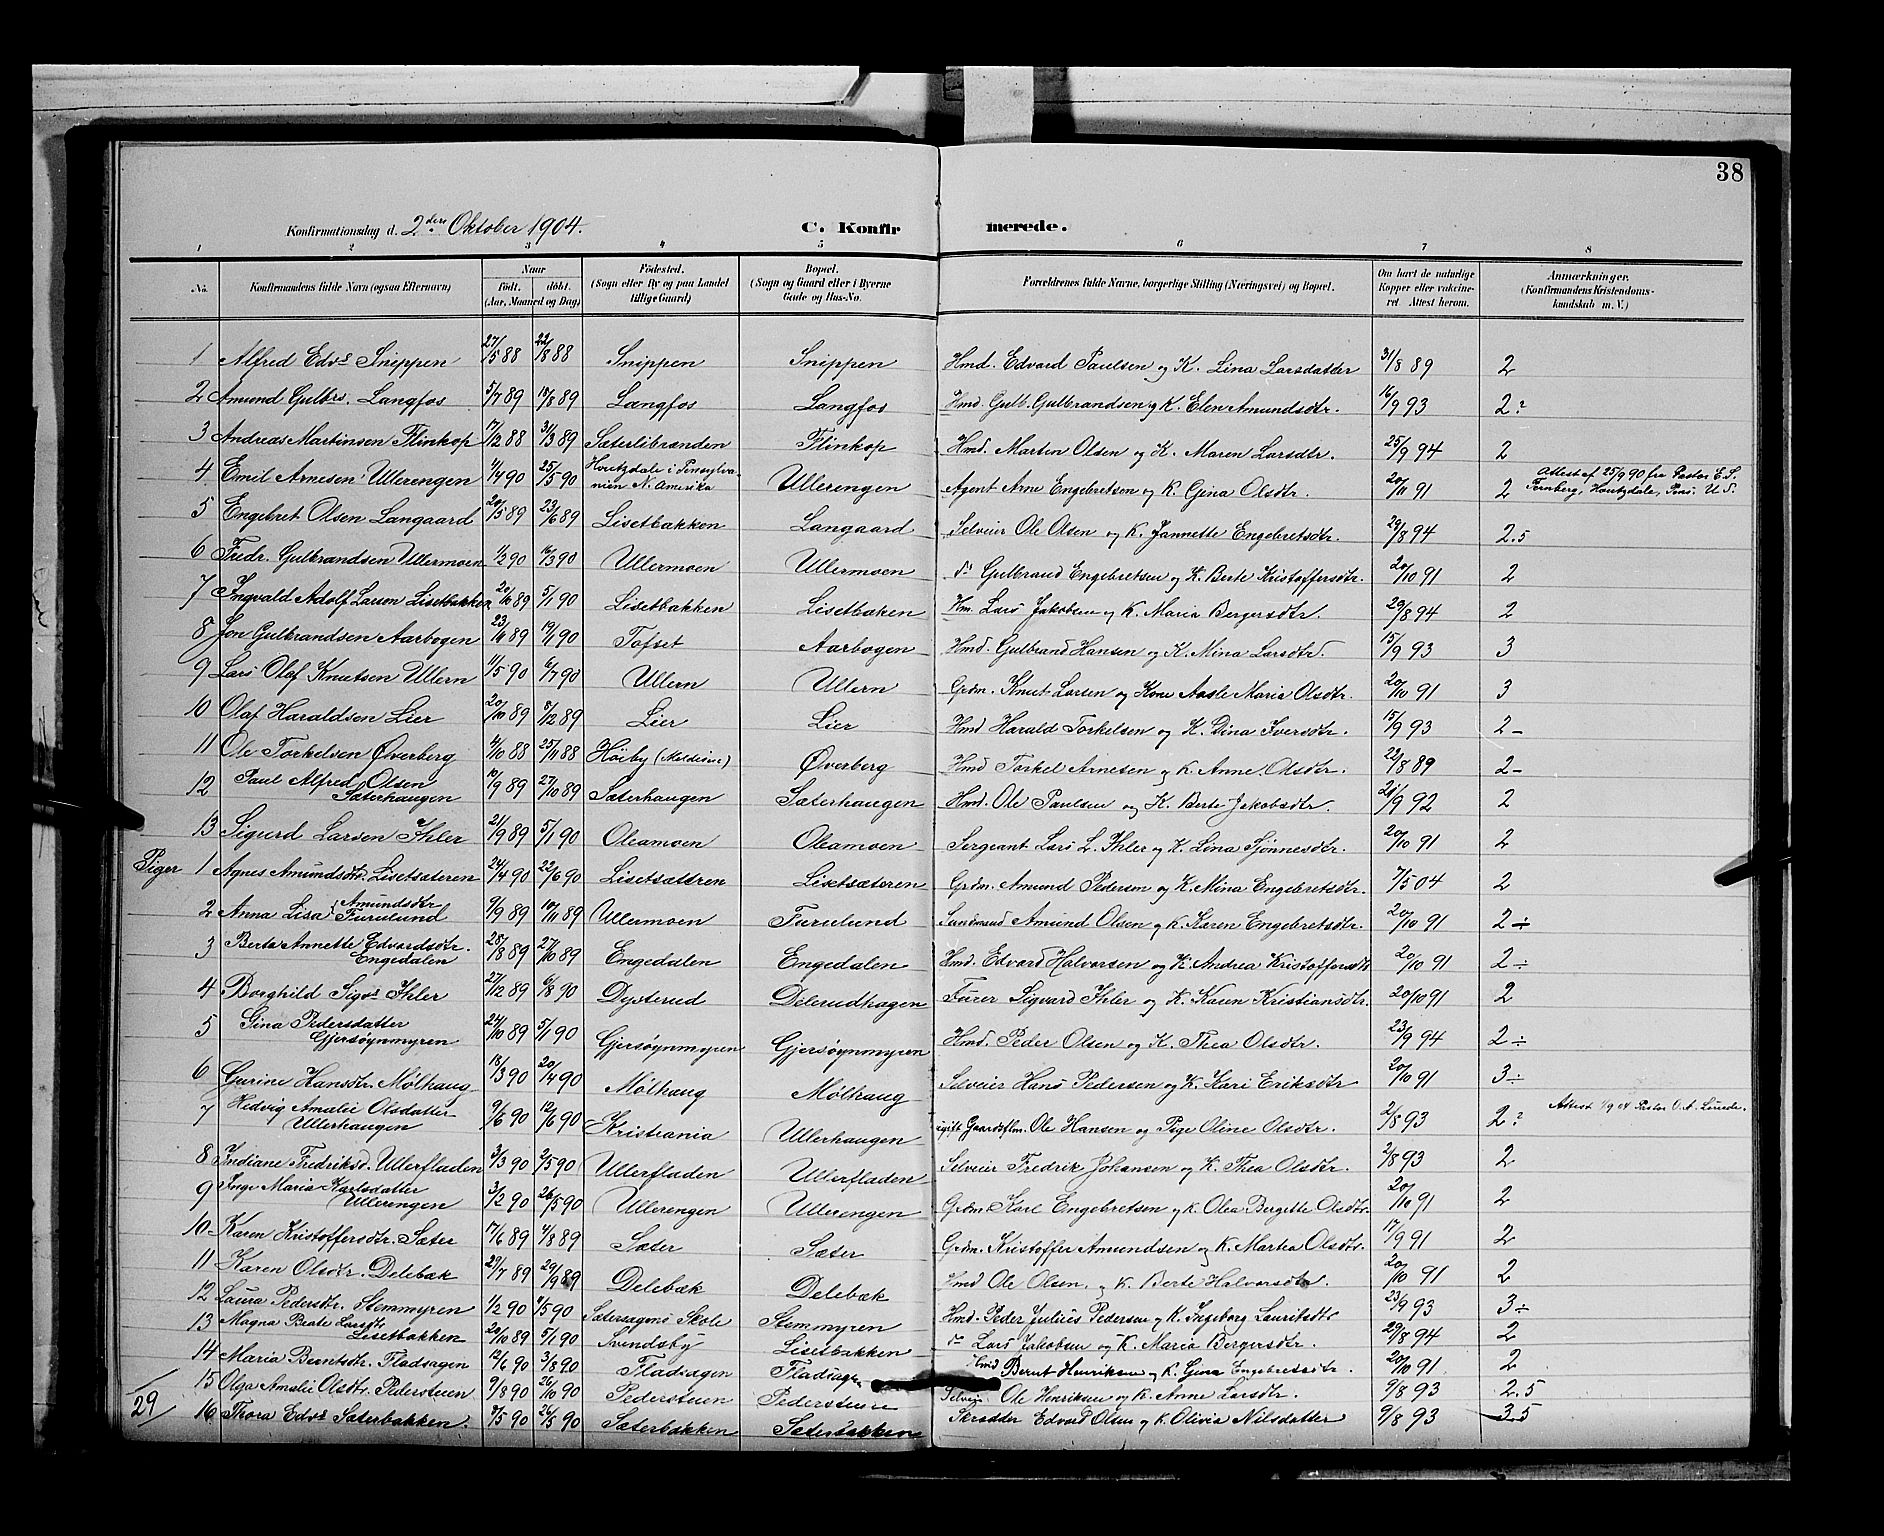 38
Konfirmationsdag d. 2den Oktober 1904.
C. Konfirmerede.
1 2 3 4 5 6 7 8
No. Konfirmandens fulde Navn (ogsaa Efternavn) Naar født. døbt. (Aar, Maaned og Dag) Fødested. (Sogn eller By og paa Landet tillige Gaard) Bopæl. (Sogn og Gaard eller i Byerne Gade og Hus-No. Forældrenes fulde Navne, borgerlige Stilling (Næringsvei) og Bopæl. Om havt de naturlige Kopper eller vaccineret. Attest herom. Anmærkninger. (Konfirmandens Kristendomskundskab m. V.)
1 Alfred Edvs Snippen 27/5 88 22/8 88 Snippen Snippen Hmd. Edvard Paulsen og K. Lina Larsdatter 31/8 89 2
2 Amund Gulbrs. Langfos 5/7 89 18/8 89 Langfos Langfos Hmd. Gulb. Gulbrandsen og K. Elen Amundsdtr. 16/9 93 2?
3 Andreas Martinsen Flinkop 17/12 88 31/3 89 Sæterlibraaden Flinkop Hmd. Martin Olsen og K. Maren Larsdtr. 25/9 94 2
4 Emil Arnesen Ullerengen 4/4 90 25/5 90 Houtzdale i Pensylvanien N. Amerika Ullerengen Agent Arne Engebretsen og K. Gina Olsdtr. 20/11 91 2 Attest af 25/9 90 fra Pastor E. S. Fernberg, Houtzdale, Pens. U. S.
5 Engebret Olsen Langaard 20/5 89 23/6 89 Lisetbakken Langaard Selveier Ole Olsen og K. Jannette Engebretsdtr. 29/8 94 2.5
6 Fredr. Gulbrandsen Ullermoen 1/2 90 16/3 90 Ullermoen Ullermoen do Gulbrand Engebretsen og K. Berte Kristoffersdtr. 20/10 91 2
7 Ingvald Adolf Larsen Lisetbakken 20/10 89 5/1 90 Lisetbakken Lisetbaken Hm. Lars Jakobsen og K. Maria Bergersdtr. 29/8 94 2
8 Jon Gulbrandsen Aarbogen 23/11 89 19/1 90 Tofset Aarbogen Hmd. Gulbrand Hansen og K. Mina Larsdtr. 15/9 93 3
9 Lars Olaf Knutsen Ullern 11/5 90 6/7 90 Ullern Ullern Grdm. Knut Larsen og Kone Aasle Maria Olsdtr. 20/10 91 3
10 Olaf Haraldsen Lier 20/10 89 5/12 89 Lier Lier Hmd Harald Torkelsen og K. Dina Iversdtr. 15/9 93 2-
11 Ole Torkelsen Øverberg 4/10 88 25/11 88 Høiby Øverberg Hmd Torkel Arnesen og K. Anne Olsdtr. 22/8 89 2-
12 Paul Alfred Olsen Sæterhaugen 10/9 89 27/10 89 Sæterhaugen Sæterhaugen Hmd. Ole Paulsen og K. Berte Jakobsdtr. 21/9 92 2
13 Sigurd Larsen Ihler 21/9 89 5/1 90 Oleamoen Oleamoen Sergeant Lars L. Ihler og K. Lina Tjønnesdtr. 20/10 91 2
Piger 1 Agnes Amundsdtr. Lisetsæteren 24/4 90 22/6 90 Lisetsættren Lisetsæteren Grdm. Amund Pedersen og K. Mina Engebretsdtr. 7/5 04 2
2 Anna Lisa Amundsdtr Furulund 9/9 89 10/11 89 Ullermoen Furulund Landmand Amund Olsen og K. Karen Engebretsdtr. 20/10 91 2÷
3 Berta Annette Edvardsdtr. Engedalen 28/8 89 27/10 89 Engedalen Engedalen Hmd. Edvard Halvorsen og K. Andrea Kristoffersdtr 20/10 91 2÷
4 Borghild Sigvs Ihler 27/12 89 6/8 90 Dysterud Delerudhagen Furer Sigvard Ihler og K. Karen Kristiansdtr. 20/10 91 2
5 Gina Pedersdatter Gjersøynmyren 24/10 89 5/1 90 Gjersøynmyren Gjersøynmyren Hmd. Peder Olsen og K. Thea Olsdtr. 23/9 94 2÷
6 Gurine Hansdtr. Mølhaug 18/3 90 20/4 90 Mølhaug Mølhaug Selveier Hans Pedersen og K. Kari Eriksdtr 20/10 91 3÷
7 Hedvig Amalie Olsdatter Ullerhaugen 9/6 90 12/6 90 Kristiania Ullerhaugen ugift Gaardsflm. Ole Hansen og Pige Oline Olsdtr. 2/8 93 2? Attest 1/9 04 Pastor O. A. Lunde.
8 Indiane Fredriksd. Ullerfladen 3/3 90 2/5 90 Ullerfladen Ullerfladen Selveier Fredrik Johansen og K. Thea Olsdtr. 2/8 93 2
9 Inge Maria Karlsdatter Ullerengen 3/2 90 26/5 90 Ullerengen Ullerengen Grdm. Karl Engebretsen og K. Olea Bergitte Olsdtr. 20/10 91 2
10 Karen Kristoffersdtr. Sæter 17/6 89 4/8 89 Sæter Sæter Grdm. Kristoffer Amundsen og K. Martea Olsdtr. 17/9 91 2
11 Karen Olsdtr. Delebæk 29/7 89 29/9 89 Delebæk Delebæk Hmd Ole Olsen og K. Berte Halvorsdtr. 20/10 91 2
12 Laura Pedersdtr. Stemmyren 1/2 90 11/5 90 Sætersagens Skole Stemmyren Hmd. Peder Julius Pedersen og K. Ingeborg Lauritsdtr 23/9 93 3÷
13 Magna Beate Larsdtr Lisetbakken 20/10 89 5/1 90 Svendsby Lisetbakken do Lars Jakobsen og K. Maria Bergersdtr. 29/8 94 2
14 Maria Berntsdtr. Fladsagen 12/6 90 3/8 90 Fladsagen Fladsagen Hmd Bernt Henriksen og K. Gina Engebretsdtr. 20/10 91 2
15 Olga Amalie Olsdtr. Pederstuen 9/8 90 26/10 90 Pederstuen Pederstuen Selveier Ole Henriksen og K. Anne Larsdtr. 9/8 93 2.5
29 16 Thora Edvs Sæterbakken. 7/5 90 26/5 90 Sæterbakken Sæterbakken Skrædder Edvard Olsen og K. Olivia Nilsdatter 9/8 93 3.5